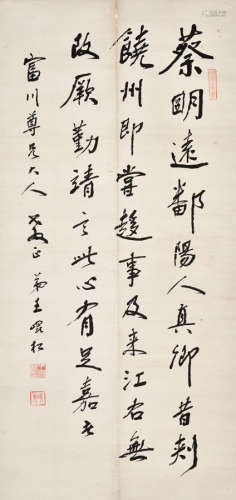 蔡明遠鄱陽人真卿昔刺
饒州即嘗趨事及来江右無
改厥勤靖言此心有足嘉者
富川尊兄大人 教正 弟王